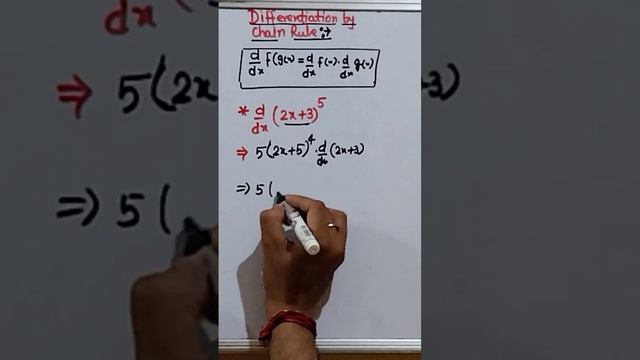 Differentiation by
Chain Rule :→
d/dx f(g(x) = d/dx f(x) · d/dx g(x)
* d/dx (2x+3)^5
⇒ 5(2x+5)^4 · d/dx (2x+3)
⇒ 5(